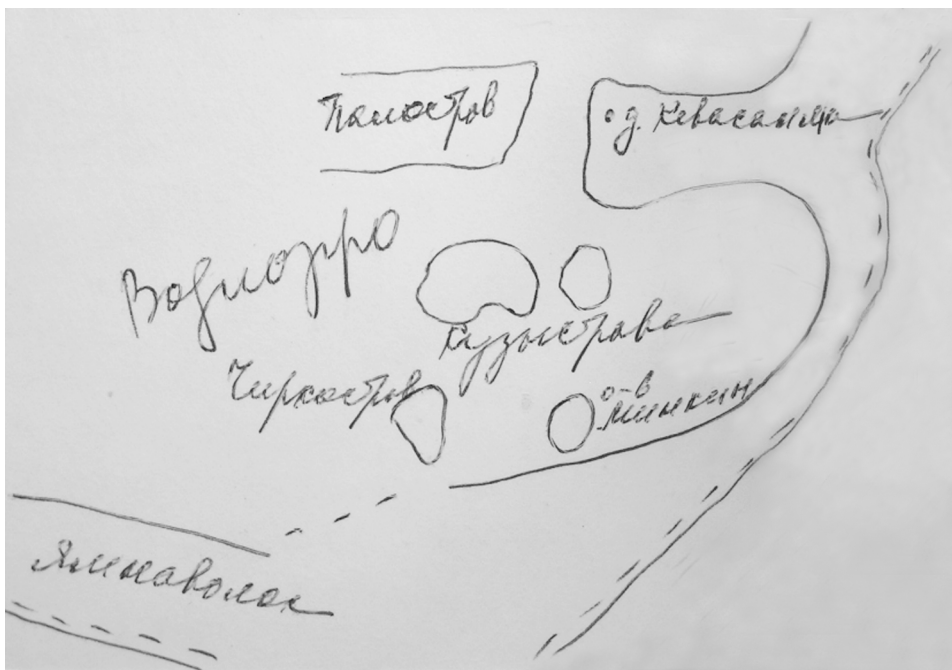 Палостров
д. Кевасалма
Водлозеро
Кузыстрова
Чиркостров
о-в
Минкин
Ямнаволок